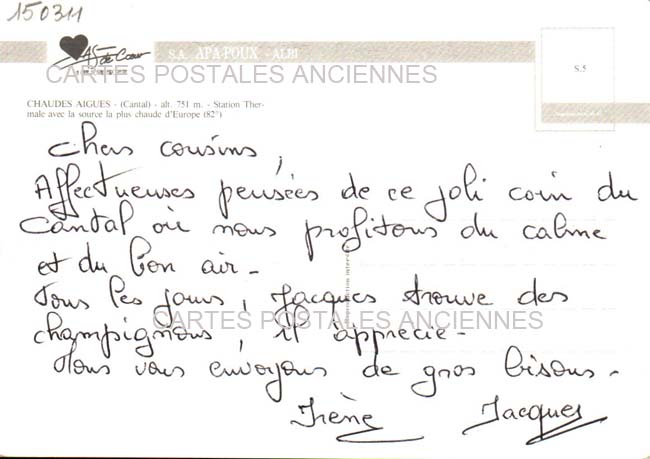 150311
As de Cœur
S.A. APA-POUX - ALBI
CARTES POSTALES ANCIENNES
S.5
CHAUDES AIGUES - (Cantal) - alt. 751 m. - Station Ther-
male avec la source la plus chaude d'Europe (82°)
Chers cousins,
Affectueuses pensées de ce joli coin du
Cantal où nous profitons du calme
et du bon air -
Tous les jours, Jacques trouve des
champignons, il apprécie -
CARTES POSTALES ANCIENNES
Nous vous envoyons de gros bisous -
Irène Jacques